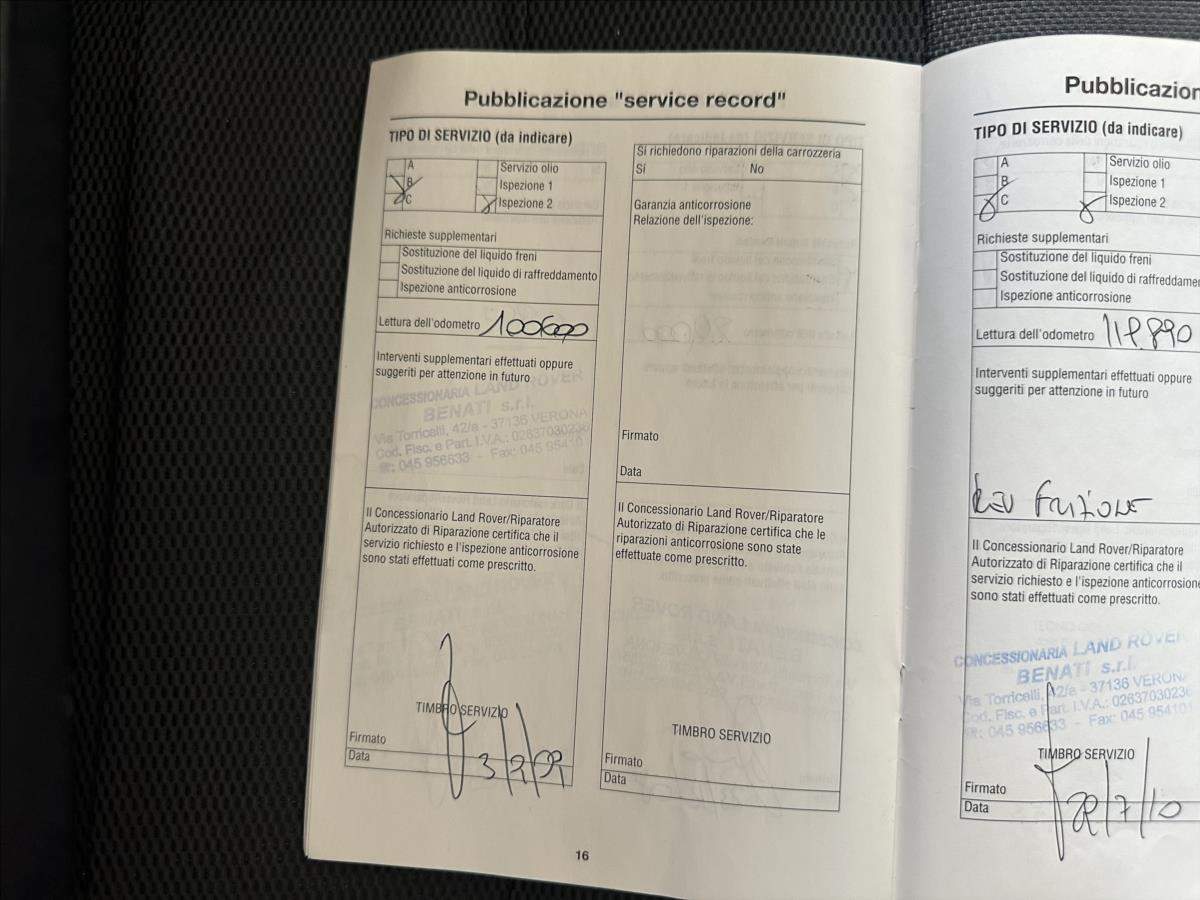 Pubblicazione "service record"
TIPO DI SERVIZIO (da indicare)
A
B
C
Servizio olio
Ispezione 1
Ispezione 2
Richieste supplementari
Sostituzione del liquido freni
Sostituzione del liquido di raffreddamento
Ispezione anticorrosione
Lettura dell'odometro 100600
Interventi supplementari effettuati oppure
suggeriti per attenzione in futuro
CONCESSIONARIA LAND ROVER
BENATI s.r.l.
Via Torricelli, 42/a - 37136 VERONA
Cod. Fisc. e Part. I.V.A.: 02637030230
☎: 045 956633 - Fax: 045 954101
Il Concessionario Land Rover/Riparatore
Autorizzato di Riparazione certifica che il
servizio richiesto e l'ispezione anticorrosione
sono stati effettuati come prescritto.
TIMBRO SERVIZIO
Firmato
Data 3/2/09
Si richiedono riparazioni della carrozzeria
Sí No
Garanzia anticorrosione
Relazione dell'ispezione:
Firmato
Data
Il Concessionario Land Rover/Riparatore
Autorizzato di Riparazione certifica che le
riparazioni anticorrosione sono state
effettuate come prescritto.
TIMBRO SERVIZIO
Firmato
Data
16
Pubblicazion
TIPO DI SERVIZIO (da indicare)
A
B
C
Servizio olio
Ispezione 1
Ispezione 2
Richieste supplementari
Sostituzione del liquido freni
Sostituzione del liquido di raffreddame
Ispezione anticorrosione
Lettura dell'odometro 118.890
Interventi supplementari effettuati oppure
suggeriti per attenzione in futuro
Rev Frizione
Il Concessionario Land Rover/Riparatore
Autorizzato di Riparazione certifica che il
servizio richiesto e l'ispezione anticorrosione
sono stati effettuati come prescritto.
CONCESSIONARIA LAND ROVER
BENATI s.r.l.
Via Torricelli, 42/a - 37136 VERONA
Cod. Fisc. e Part. I.V.A.: 0263703023
☎: 045 956633 - Fax: 045 954101
TIMBRO SERVIZIO
Firmato
Data 22/7/10